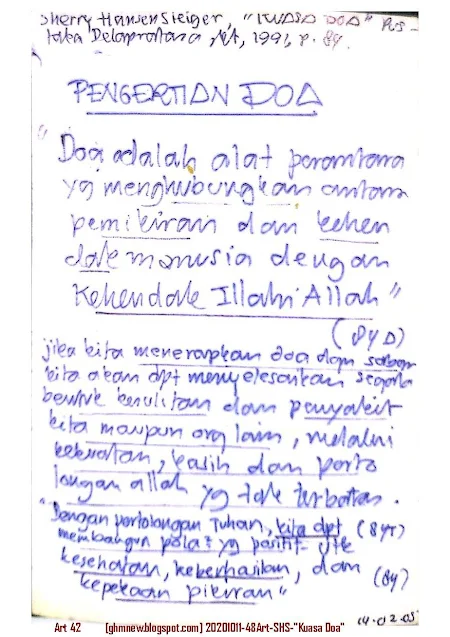 Sherry Hansen Steiger, "KUASA DOA" Pus-
taka Delapratasa, Jkt, 1991, p. 84.
PENGERTIAN DOA
"Doa adalah alat perantara
yg menghubungkan antara
pemikiran dan kehen
dak manusia dengan
Kehendak Illahi Allah"
(84 D)
jika kita menerapkan doa dgn sabar
kita akan dpt menyelesaikan segala
bentuk kesulitan dan penyakit
kita maupun org lain, melalui
kekuatan, kasih dan perto
longan allah yg tak terbatas.
"Dengan pertolongan Tuhan, kita dpt (84)
membangun pola2 yg positif utk
kesehatan, keberhasilan, dan
kepekaan pikiran" (84)
14.02.05
Art 42 [ghmnew.blogspot.com] 20201011-48Art-SHS-"Kuasa Doa"